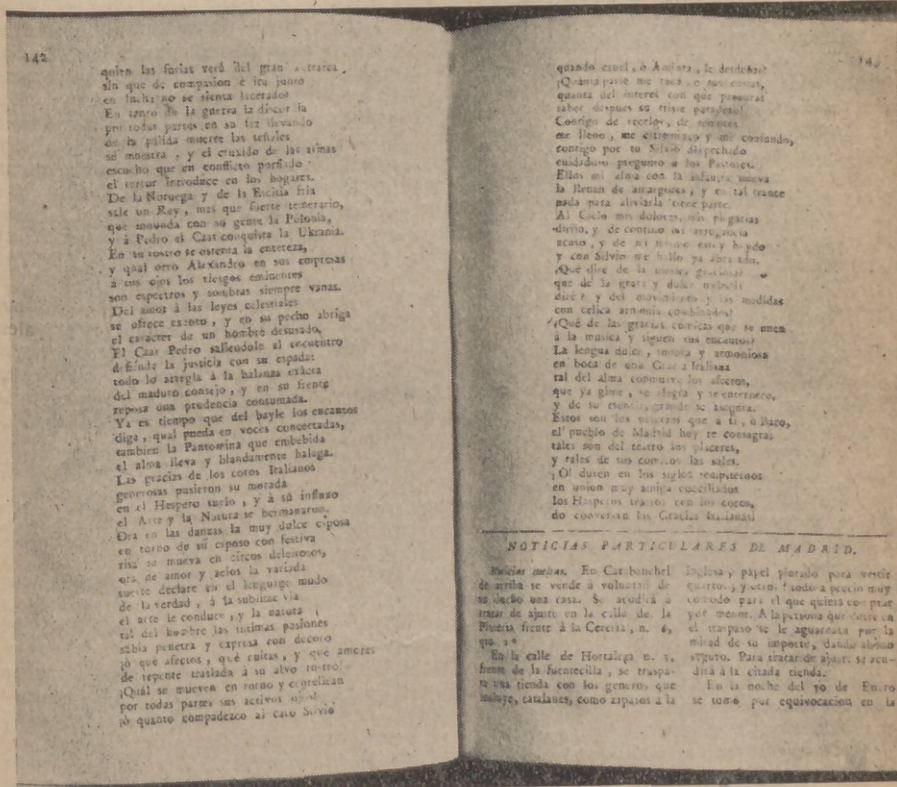 142
quien las furias verá del gran
sin que de compasion é ira junto
en lucha no se sienta lacerado?
En tanto de la guerra la discordia
por todas partes en su faz llevando
de la pálida muerte las señales
se muestra , y el cruxido de las armas
escucho que en conflicto porfiado
el terror introduce en los hogares.
De la Noruega y de la Escitia fria
sale un Rey , mas que fuerte temerario,
que inounda con su gente la Polonia,
y á Pedro el Czar conquista la Ukrania.
En su rostro se ostenta la entereza,
y qual otro Alexandro en sus empresas
á sus ojos los riesgos eminentes
son espectros y sombras siempre vanas.
Del amor á las leyes celestiales
se ofrece exênto , y en su pecho abriga
el caracter de un hombre desusado,
El Czar Pedro saliendole al encuentro
defiende la justicia con su espada:
todo lo arregla á la balanza exâcta
del maduro consejo , y en su frente
reposa una prudencia consumada.
Ya es tiempo que del bayle los encantos
diga , qual pueda en voces concertadas,
tambien la Pantomina que embebida
el alma lleva y blandamente halaga.
Las gracias de los coros Italianos
generosas pusieron su morada
en el Hespero suelo , y á su influxo
el Arte y la Natura se hermanaron.
Ora en las danzas la muy dulce esposa
en torno de su esposo con festiva
risa se mueva en circos deleitosos,
ora de amor y zelos la variada
suerte declare en el lenguage mudo
de la verdad , á la sublime via
el arte le conduce , y la natura
tal del hombre las íntimas pasiones
sabia penetra y expresa con decoro
¡ó que afectos , qué cuitas , y que amores
de repente traslada á su alvo rostro!
¡Quál se mueven en torno y centellean
por todas partes sus activos ojos!
¡ó quanto compadezco al caro Silvio
quando cruel , ó Aminta , le desdeñas!
¡Quánta parte me toca de sus cuitas,
quanta del interes con que procuras
saber despues su triste paradero!
Contigo de recelos , de
me lleno , me estremezco y me confundo,
contigo por tu Silvio despechado
cuidadoso pregunto á los Pastores.
Ellos mi alma con la infausta nueva
la llenan de amargores , y en tal trance
nada para aliviarla tiene parte.
Al Cielo mis dolores, mis plegarias
dirijo, y de contino mi arrogancia
acuso , y de mi mismo estoy huydo
y con Silvio me hallo ya abrazado.
¿Qué dire de la musica graciosa?
que de la grata y dulce melodía
dire? y del movimiento y las medidas
con celica armonia combinados?
¿Qué de las gracias cómicas que se unen
á la musica y siguen sus encantos?
La lengua dulce , sonora y armoniosa
en boca de una Gracia Italiana
tal del alma conmueve los afectos,
que ya gime , se alegra y se enternece,
y de su ciencia grande se
Estos son los placeres que á ti , ó Baco,
el pueblo de Madrid hoy te consagra:
tales son del teatro los placeres,
y tales de sus comicos las sales.
¡O! duren en los siglos sempiternos
en union muy amiga conciliados
los Hasperios teatros con los coros,
do conversan las Gracias Italianas!
NOTICIAS PARTICULARES DE MADRID.
Noticias sueltas. En Carabanchel
de arriba se vende á voluntad de
su dueño una casa. Se acudirá á
tratar de ajuste en la calle de la
frente á la Cerería, n. 6,
qto. 2.º
En la calle de Hortaleza n. 3,
frente de la fuentecilla , se traspasa
una tienda con los generos que
incluye, catalanes, como zapatos á la
inglesa , papel pintado para vestir
quartos, y otro: todo á precio muy
comodo para el que quiera comprar
por menor. A la persona que entre en
el traspaso se le aguardará por la
mitad de su importe, dando abono
seguro. Para tratar de ajuste se acudirá
á la citada tienda.
En la noche del 30 de Enero
se tomó por equivocacion en la